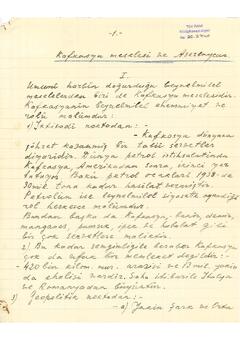 -1-
Kafkasya meselesi ve Azerbaycan.
I.
Umumî harbin doğurduğu beynelmilel
meselelerden biri de Kafkasya meselesidir.
Kafkasyanın beynelmilel ehemmiyet ve
rolü malûmdur:
1) İktisadî noktadan: -
- Kafkasya dünyaca
şöhret kazanmış bir tabiî servetler
diyarıdır. Dünya petrol istihsalatında
Kafkasya, Amerikadan sonra, ikinci yer
tutuyor. Bakü petrol ocakları 1938-de
30 milk. tona kadar hasılat vermiştir.
Petrolun ise beynelmilel siyasette oynadığı
rol herkesce malûmdur.
Bundan başka da Kafkasya, demir,
manganes, pamuk, ipek ve hububat gibi
bir çok servetlere maliktir.
2) Bu kadar zenginliğile beraber Kafkasya
çok da ufak bir memleket değildir: -
420 bin kilom. mur. arazisi ve 13 mil. yarım
da ahalisi vardır. Saha itibarile İtalya
ve Romanyadan büyüktür.
3) Geopolitik noktadan: -
- a) Yakın Şark ve Orta